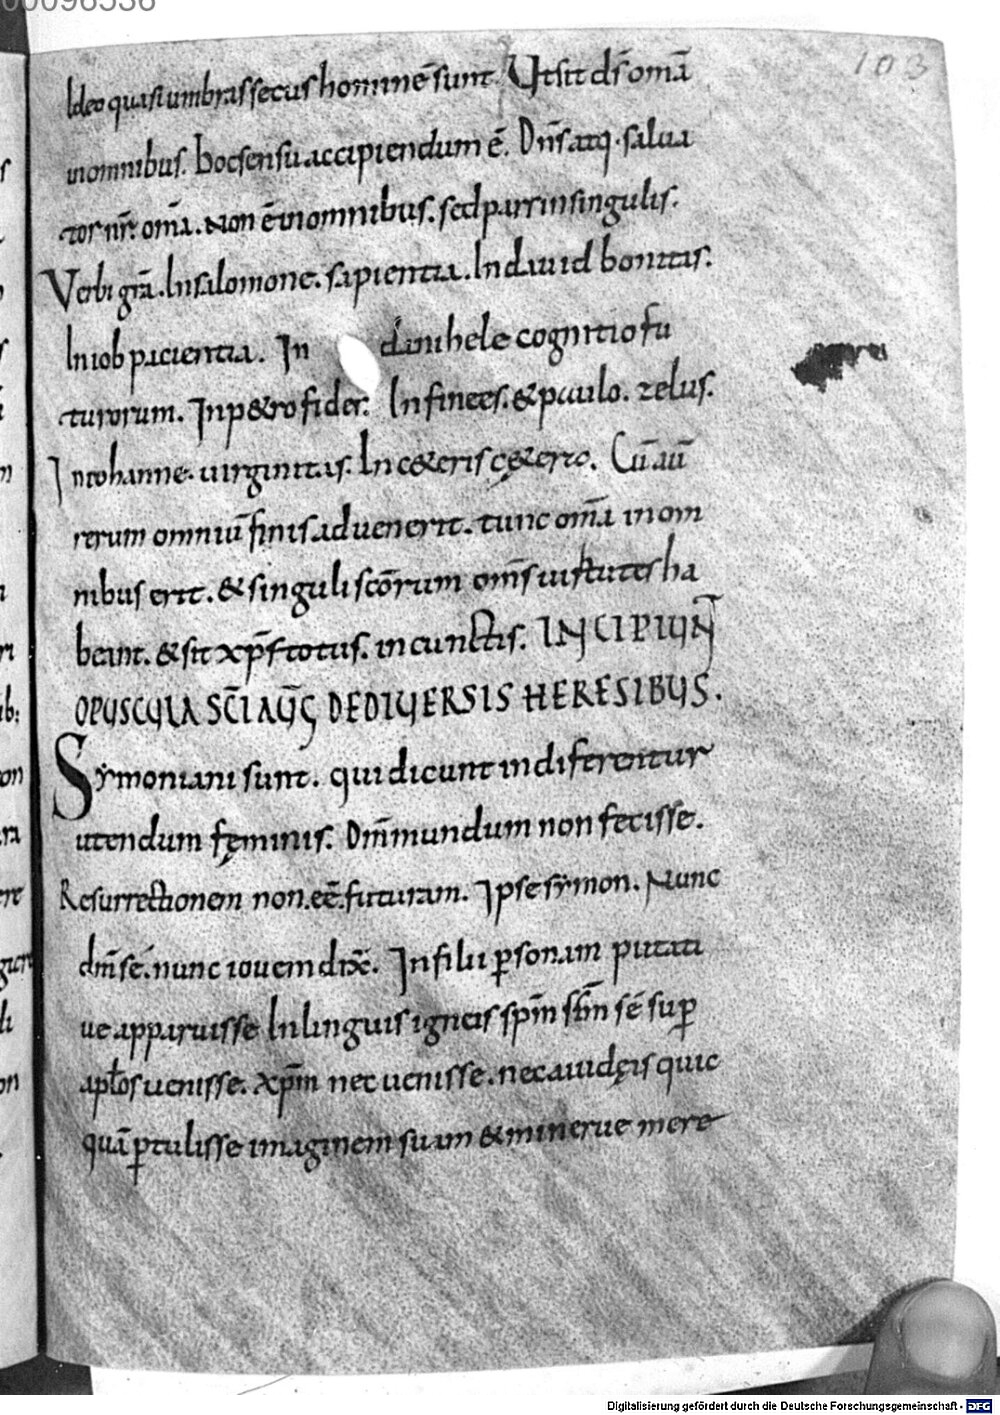 00096536
103
Ideo quasi umbras secus homine sunt. Ut sit dŝ omā
inomnibus. hoc sensu accipiendum ē. Dn̄s atq; salua
tor nr̄. om̄a. Non ē inomnibus. sed pars insingulis.
Verbi grā. In salomone. sapientia. In dauid bonitas.
In iob pacientia. In danihele cognitio fu
turorum. In p&ro fides. In finees. & paulo. zelus.
In iohanne. uirginitas. In c&eris c&era. Cū aū
rerum omniū finis aduenerit. tunc om̄a in om
nibus erit. & singuli scōrum om̄s uirtutes ha
beant. & sit xp̄s totus. in cunctis. INCIPIUNT̄
OPUSCULA SC̄I AUḠ DE DIUERSIS HERESIBUS.
Symoniani sunt. qui dicunt indiferenter
utendum fęminis. Dn̄m mundum non fecisse.
Resurrectionem non. eē. futuram. Ipse symon. Nunc
dn̄m sē. nunc iouem dix̄. In filii ꝑsonam putati
ue apparuisse In linguis igneis sp̄m sc̄m sē suꝑ
apl̄os uenisse. xp̄m nec uenisse. nec a iudęis quic
quā ꝑtulisse imaginem suam & minerue mere
Digitalisierung gefördert durch die Deutsche Forschungsgemeinschaft - DFG